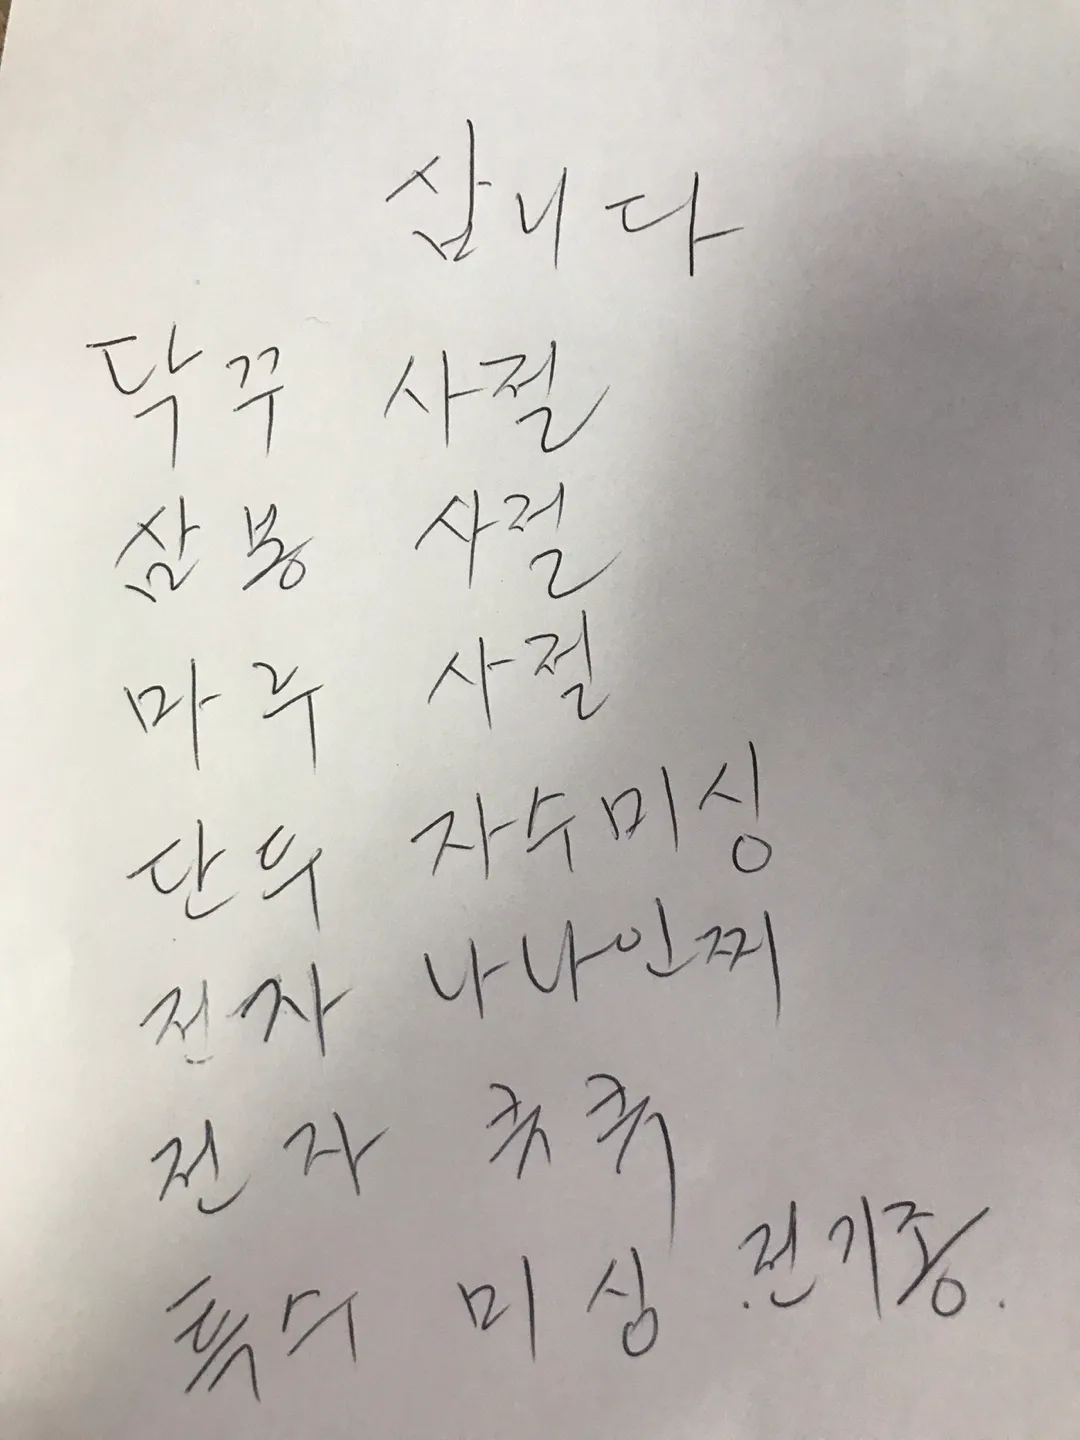 삽니다
닥꾸 사절
삼봉 사절
마루 사절
단두 자수미싱
전자 나나인찌
전자 큿퀵
특수 미싱 전기종.